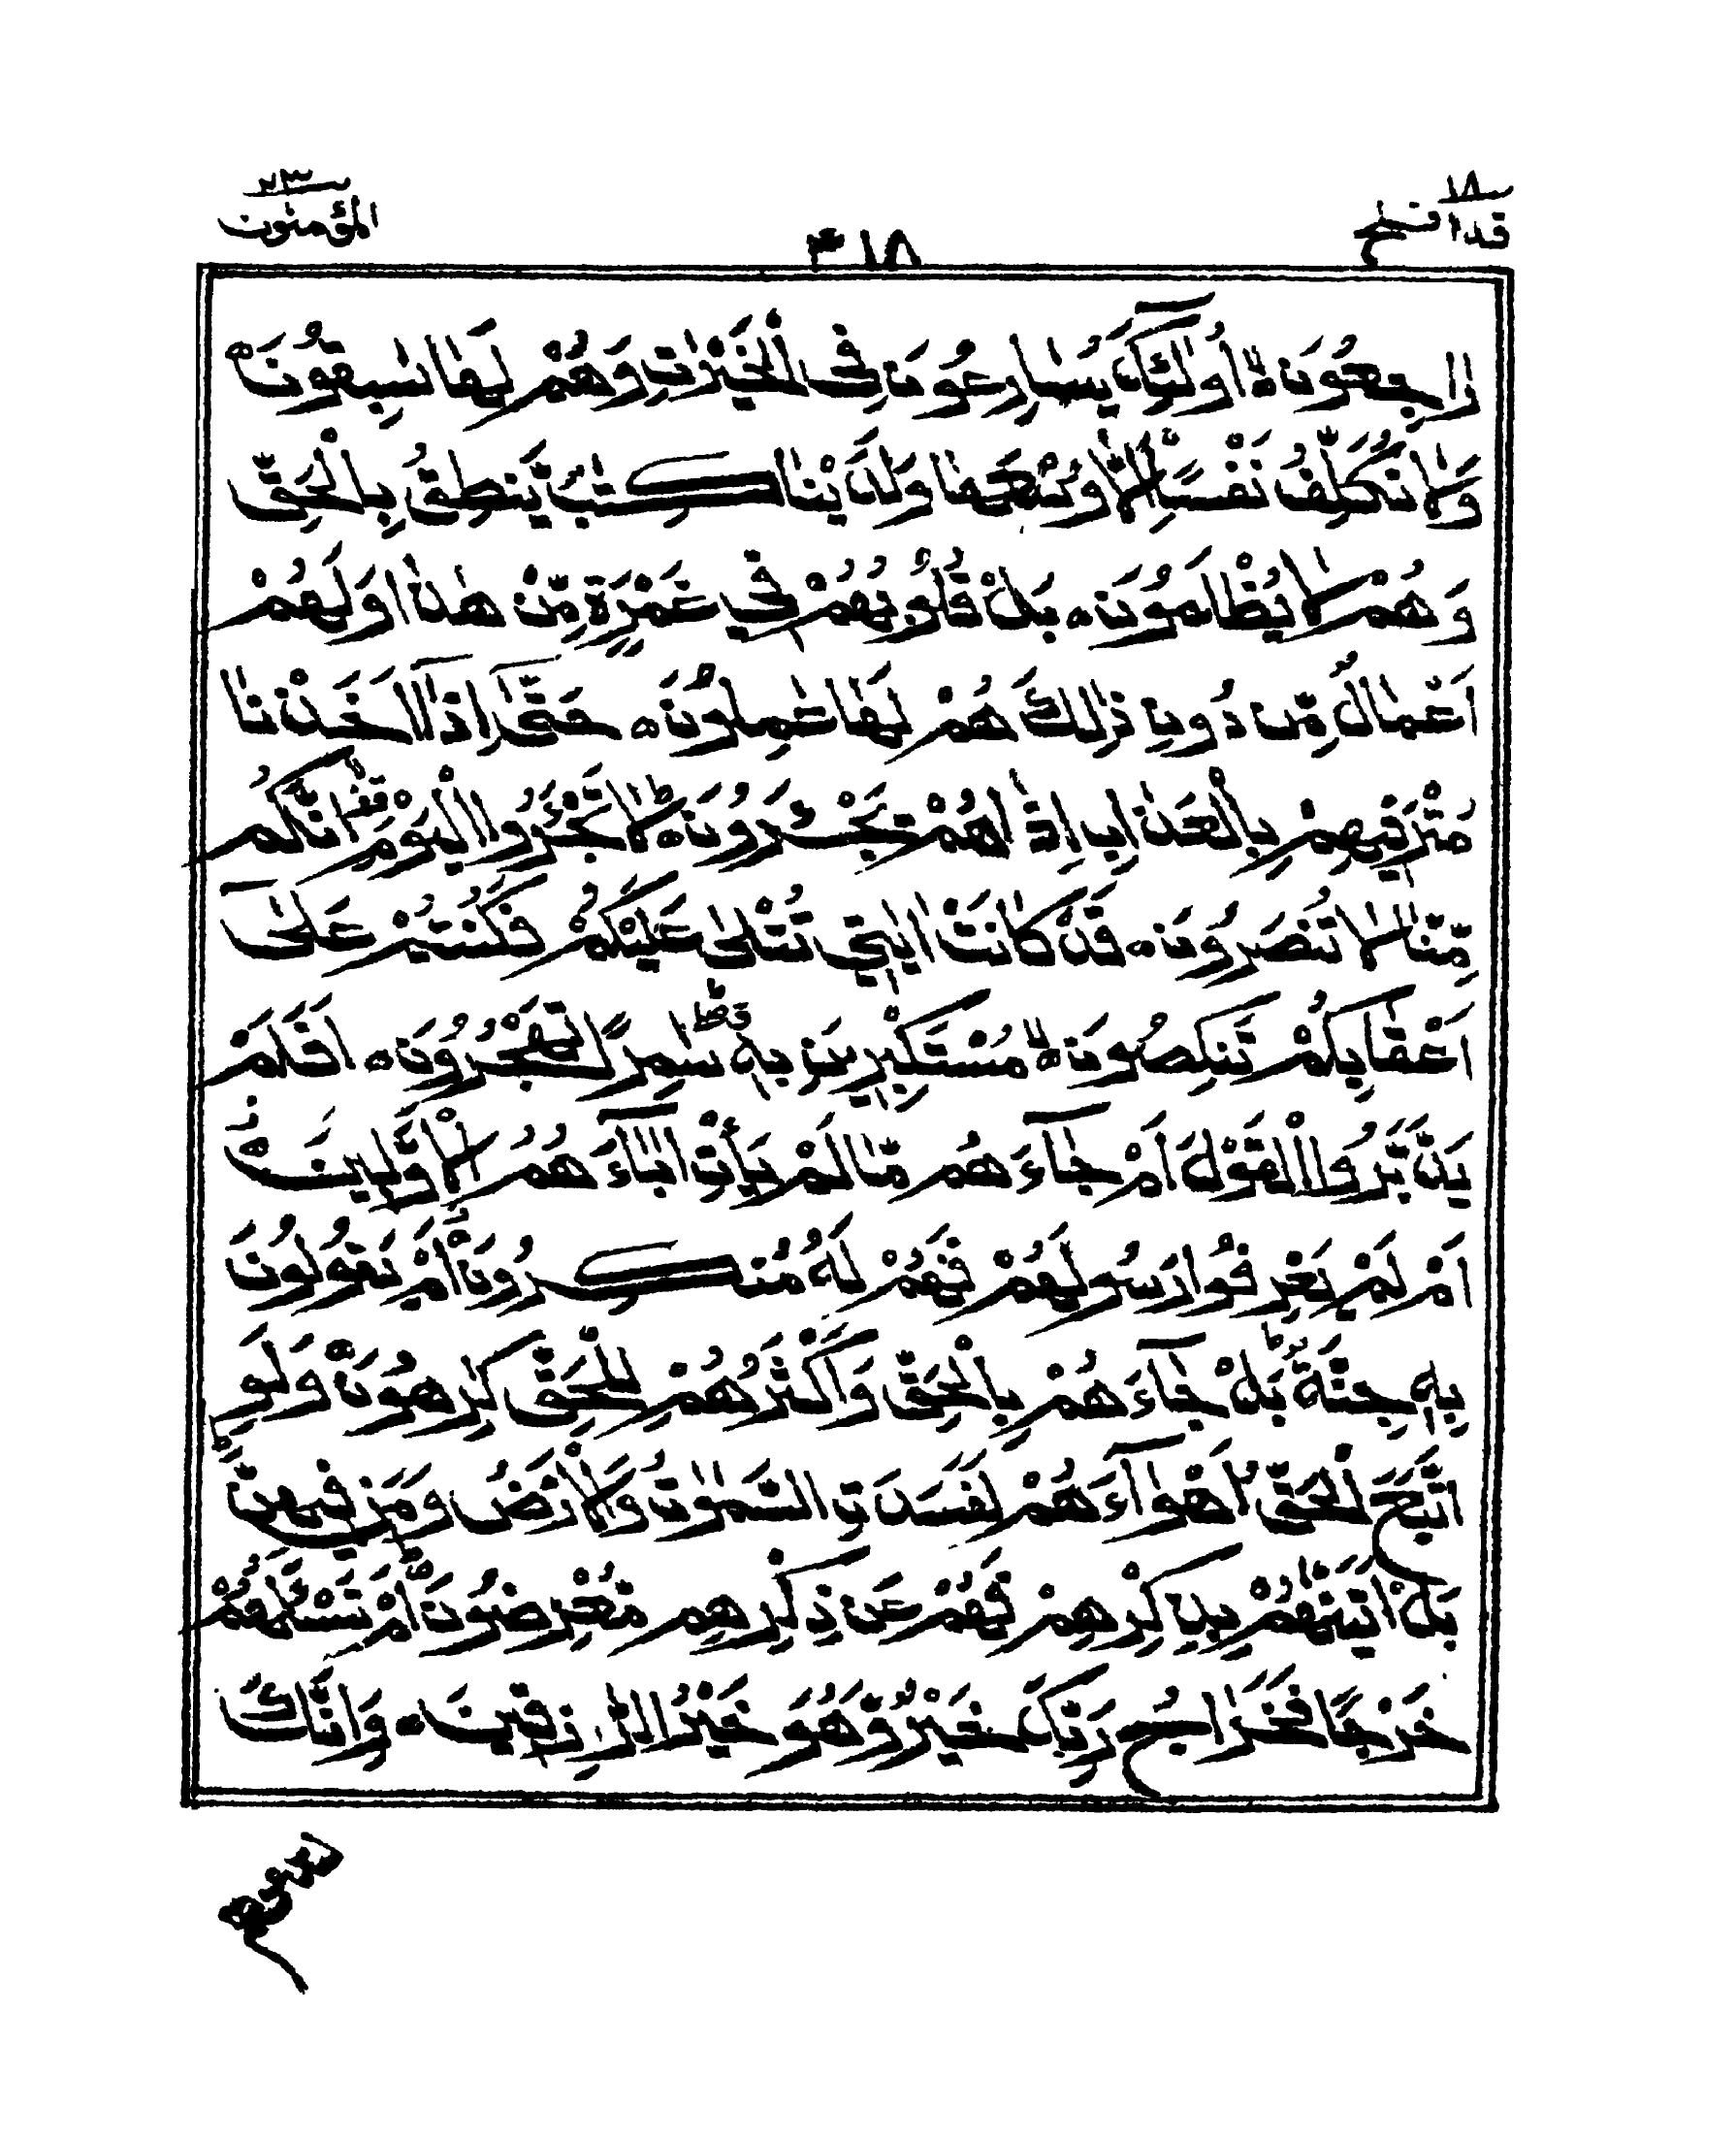 قد افلح ١٨
٤١٨
المؤمنون ٢٣
رٰجِعُوْنَ ۙ اُولٰٓئِكَ يُسٰرِعُوْنَ فِى الْخَيْرٰتِ وَهُمْ لَهَا سٰبِقُوْنَ
وَلَا نُكَلِّفُ نَفْسًا اِلَّا وُسْعَهَا وَلَدَيْنَا كِتٰبٌ يَّنْطِقُ بِالْحَقِّ
وَهُمْ لَا يُظْلَمُوْنَ ۰ بَلْ قُلُوْبُهُمْ فِيْ غَمْرَةٍ مِّنْ هٰذَا وَلَهُمْ
اَعْمَالٌ مِّنْ دُوْنِ ذٰلِكَ هُمْ لَهَا عٰمِلُوْنَ ۰ حَتّٰٓى اِذَآ اَخَذْنَا
مُتْرَفِيْهِمْ بِالْعَذَابِ اِذَا هُمْ يَجْئَرُوْنَ ۰ لَا تَجْئَرُوا الْيَوْمَ قف اِنَّكُمْ
مِّنَّا لَا تُنْصَرُوْنَ ۰ قَدْ كَانَتْ اٰيٰتِيْ تُتْلٰى عَلَيْكُمْ فَكُنْتُمْ عَلٰٓى
اَعْقَابِكُمْ تَنْكِصُوْنَ ۙ مُسْتَكْبِرِيْنَ بِهٖ قط سٰمِرًا تَهْجُرُوْنَ ۰ اَفَلَمْ
يَدَّبَّرُوا الْقَوْلَ اَمْ جَآءَهُمْ مَّا لَمْ يَأْتِ اٰبَآءَهُمُ الْاَوَّلِيْنَ
اَمْ لَمْ يَعْرِفُوْا رَسُوْلَهُمْ فَهُمْ لَهٗ مُنْكِرُوْنَ اَمْ يَقُوْلُوْنَ
بِهٖ جِنَّةٌ ؕ بَلْ جَآءَهُمْ بِالْحَقِّ وَاَكْثَرُهُمْ لِلْحَقِّ كٰرِهُوْنَ وَلَوِ
اتَّبَعَ الْحَقُّ اَهْوَآءَهُمْ لَفَسَدَتِ السَّمٰوٰتُ وَالْاَرْضُ وَمَنْ فِيْهِنَّ ؕ
بَلْ اَتَيْنٰهُمْ بِذِكْرِهِمْ فَهُمْ عَنْ ذِكْرِهِمْ مُّعْرِضُوْنَ اَمْ تَسْئَلُهُمْ
خَرْجًا فَخَرَاجُ رَبِّكَ خَيْرٌ وَّهُوَ خَيْرُ الرّٰزِقِيْنَ ۰ وَاِنَّكَ